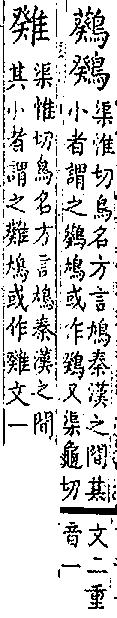 渠淮切鳥名方言鳩秦漢之間其
小者謂之鳩或作又渠龜切
文二重
音一
渠惟切鳥名方言鳩秦漢之間
其小者謂之鳩或作文一